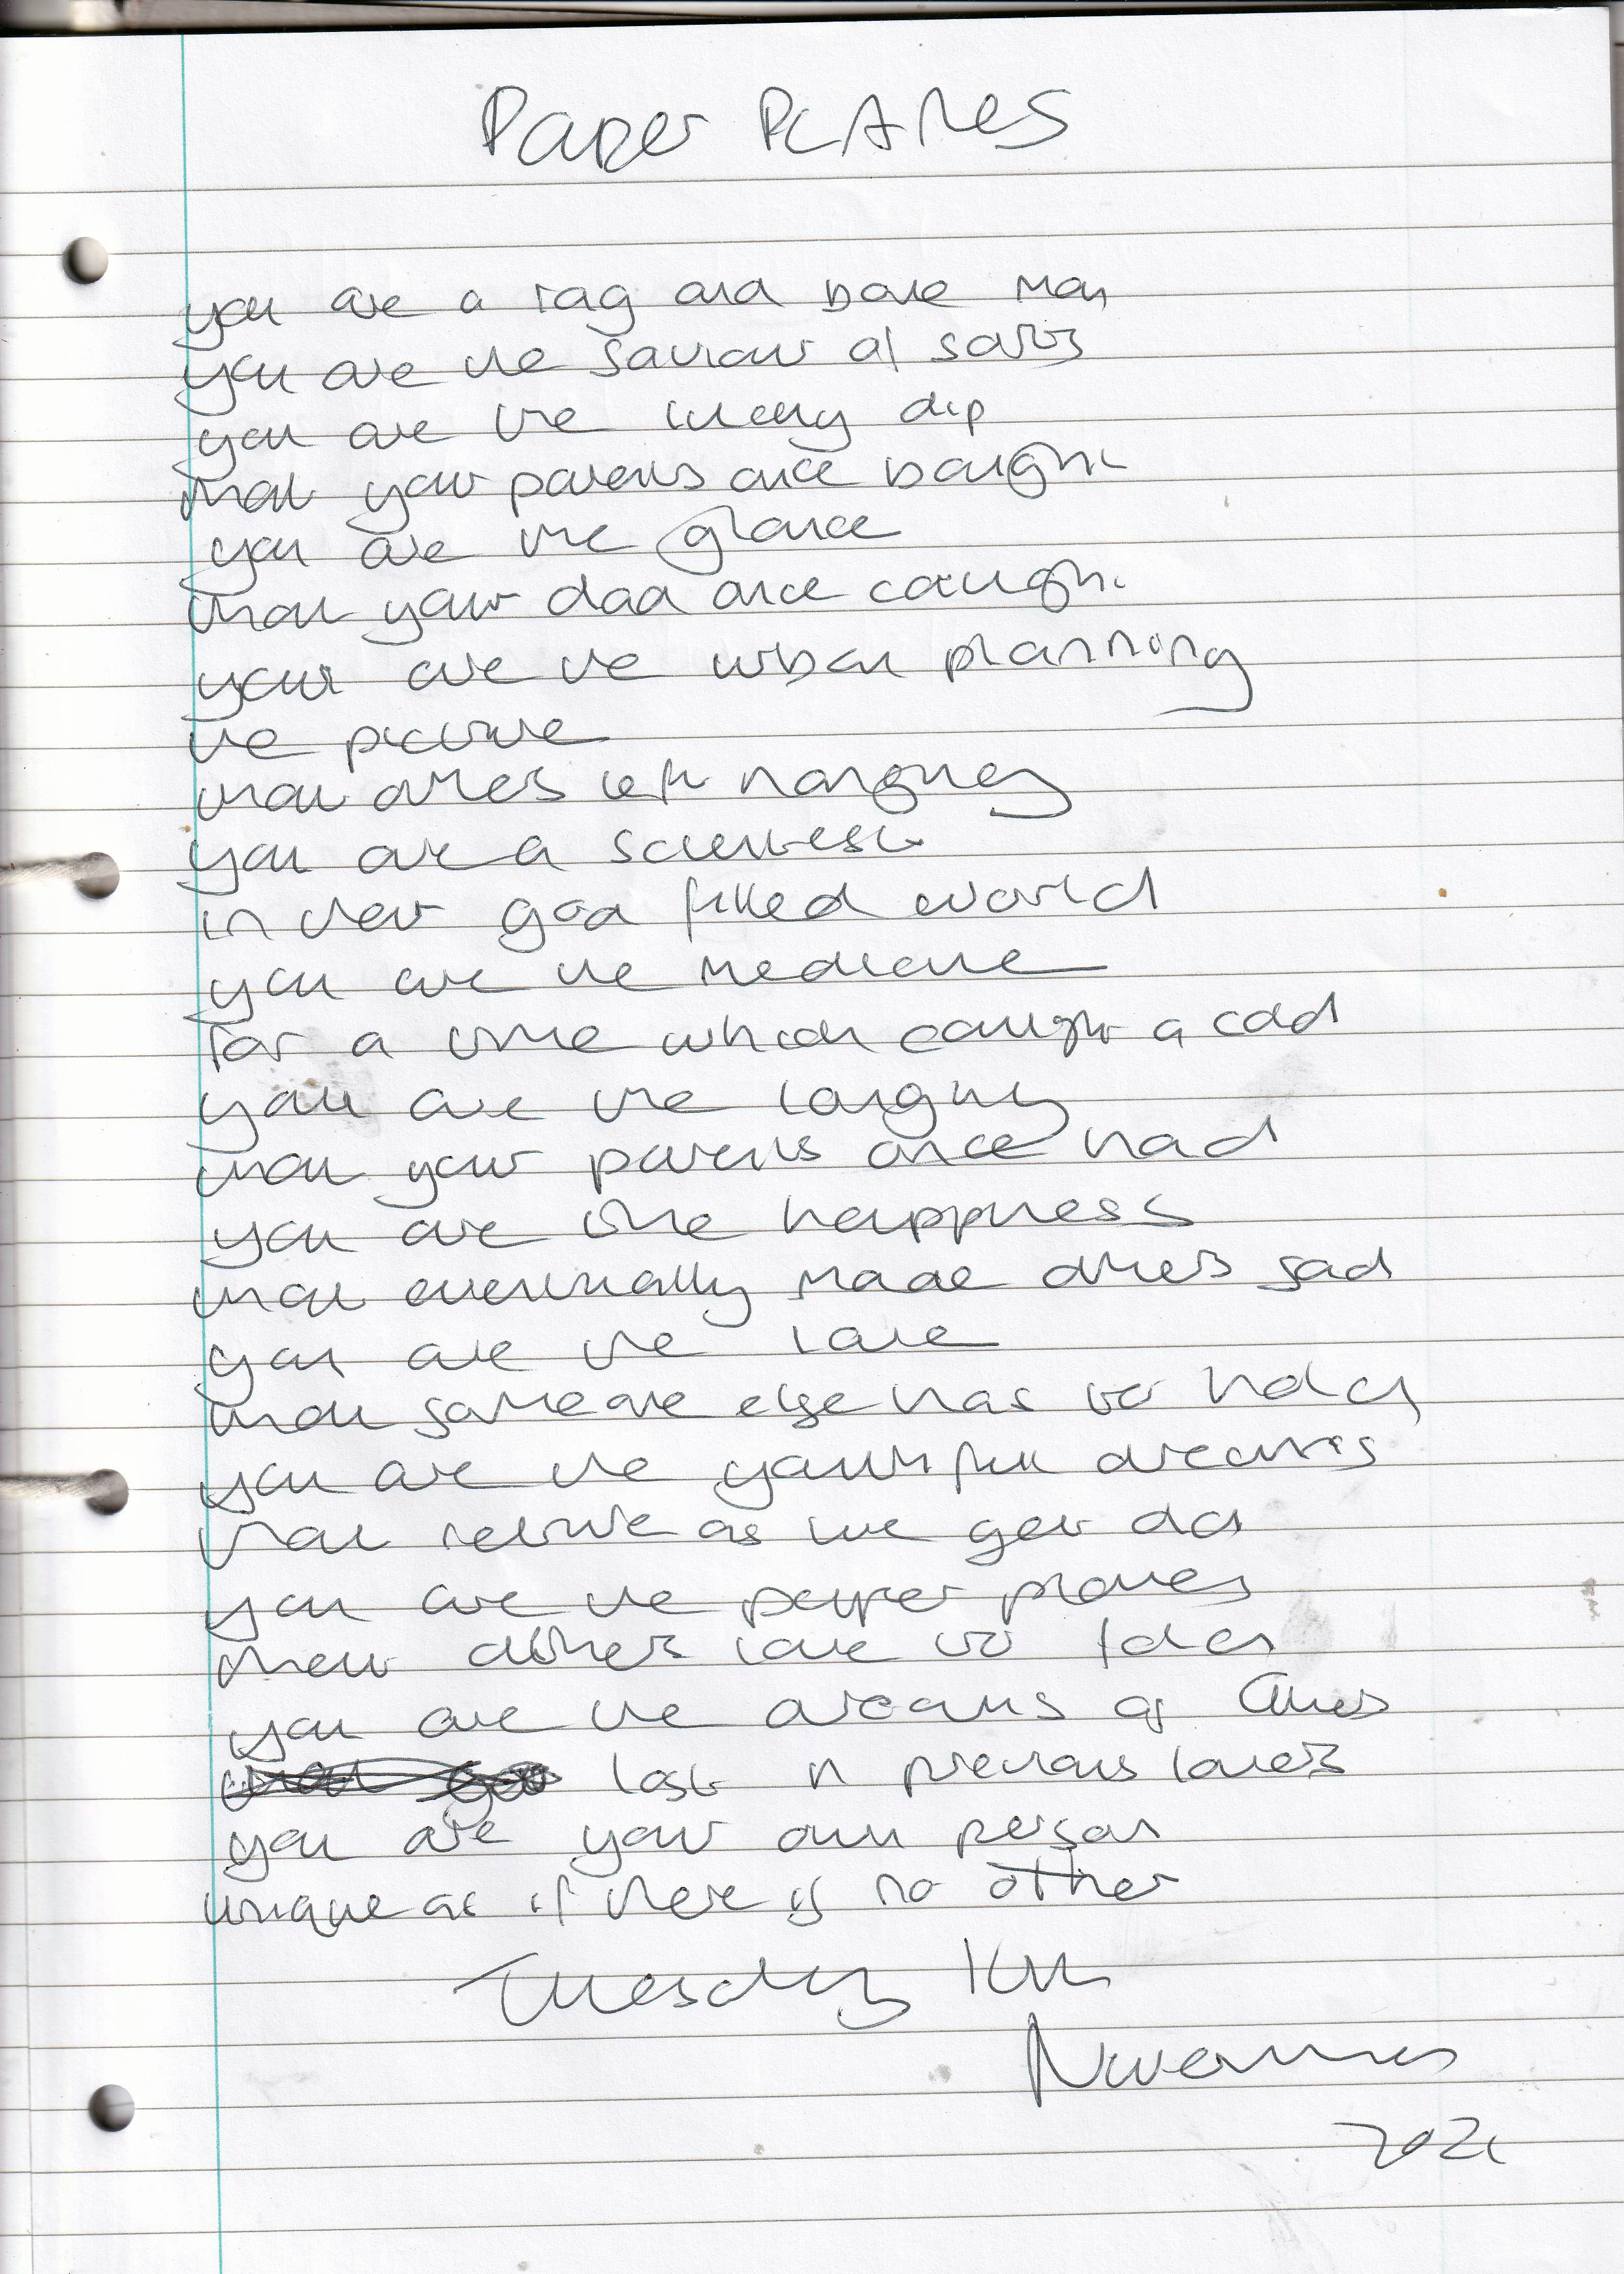 Paper PLANes
you are a rag and bone man
you are the saviour of sorts
you are the lucky dip
that your parents once bought
you are the glance
that your dad once caught
your are the urban planning
the picture
that others left hanging
you are a scientest
in their god filled world
you are the medicine
for a time which caught a cold
you are the laughs
that your parents once had
you are the happness
that eventually made others sad
you are the love
that someone else has to hold
you are the youthfull dreams
that return as we get old
you are the paper planes
that others love to fold
you are the dreams of others
lost in previous lovers
you are your own person
unique as if there is no other
Tuesday
November
202